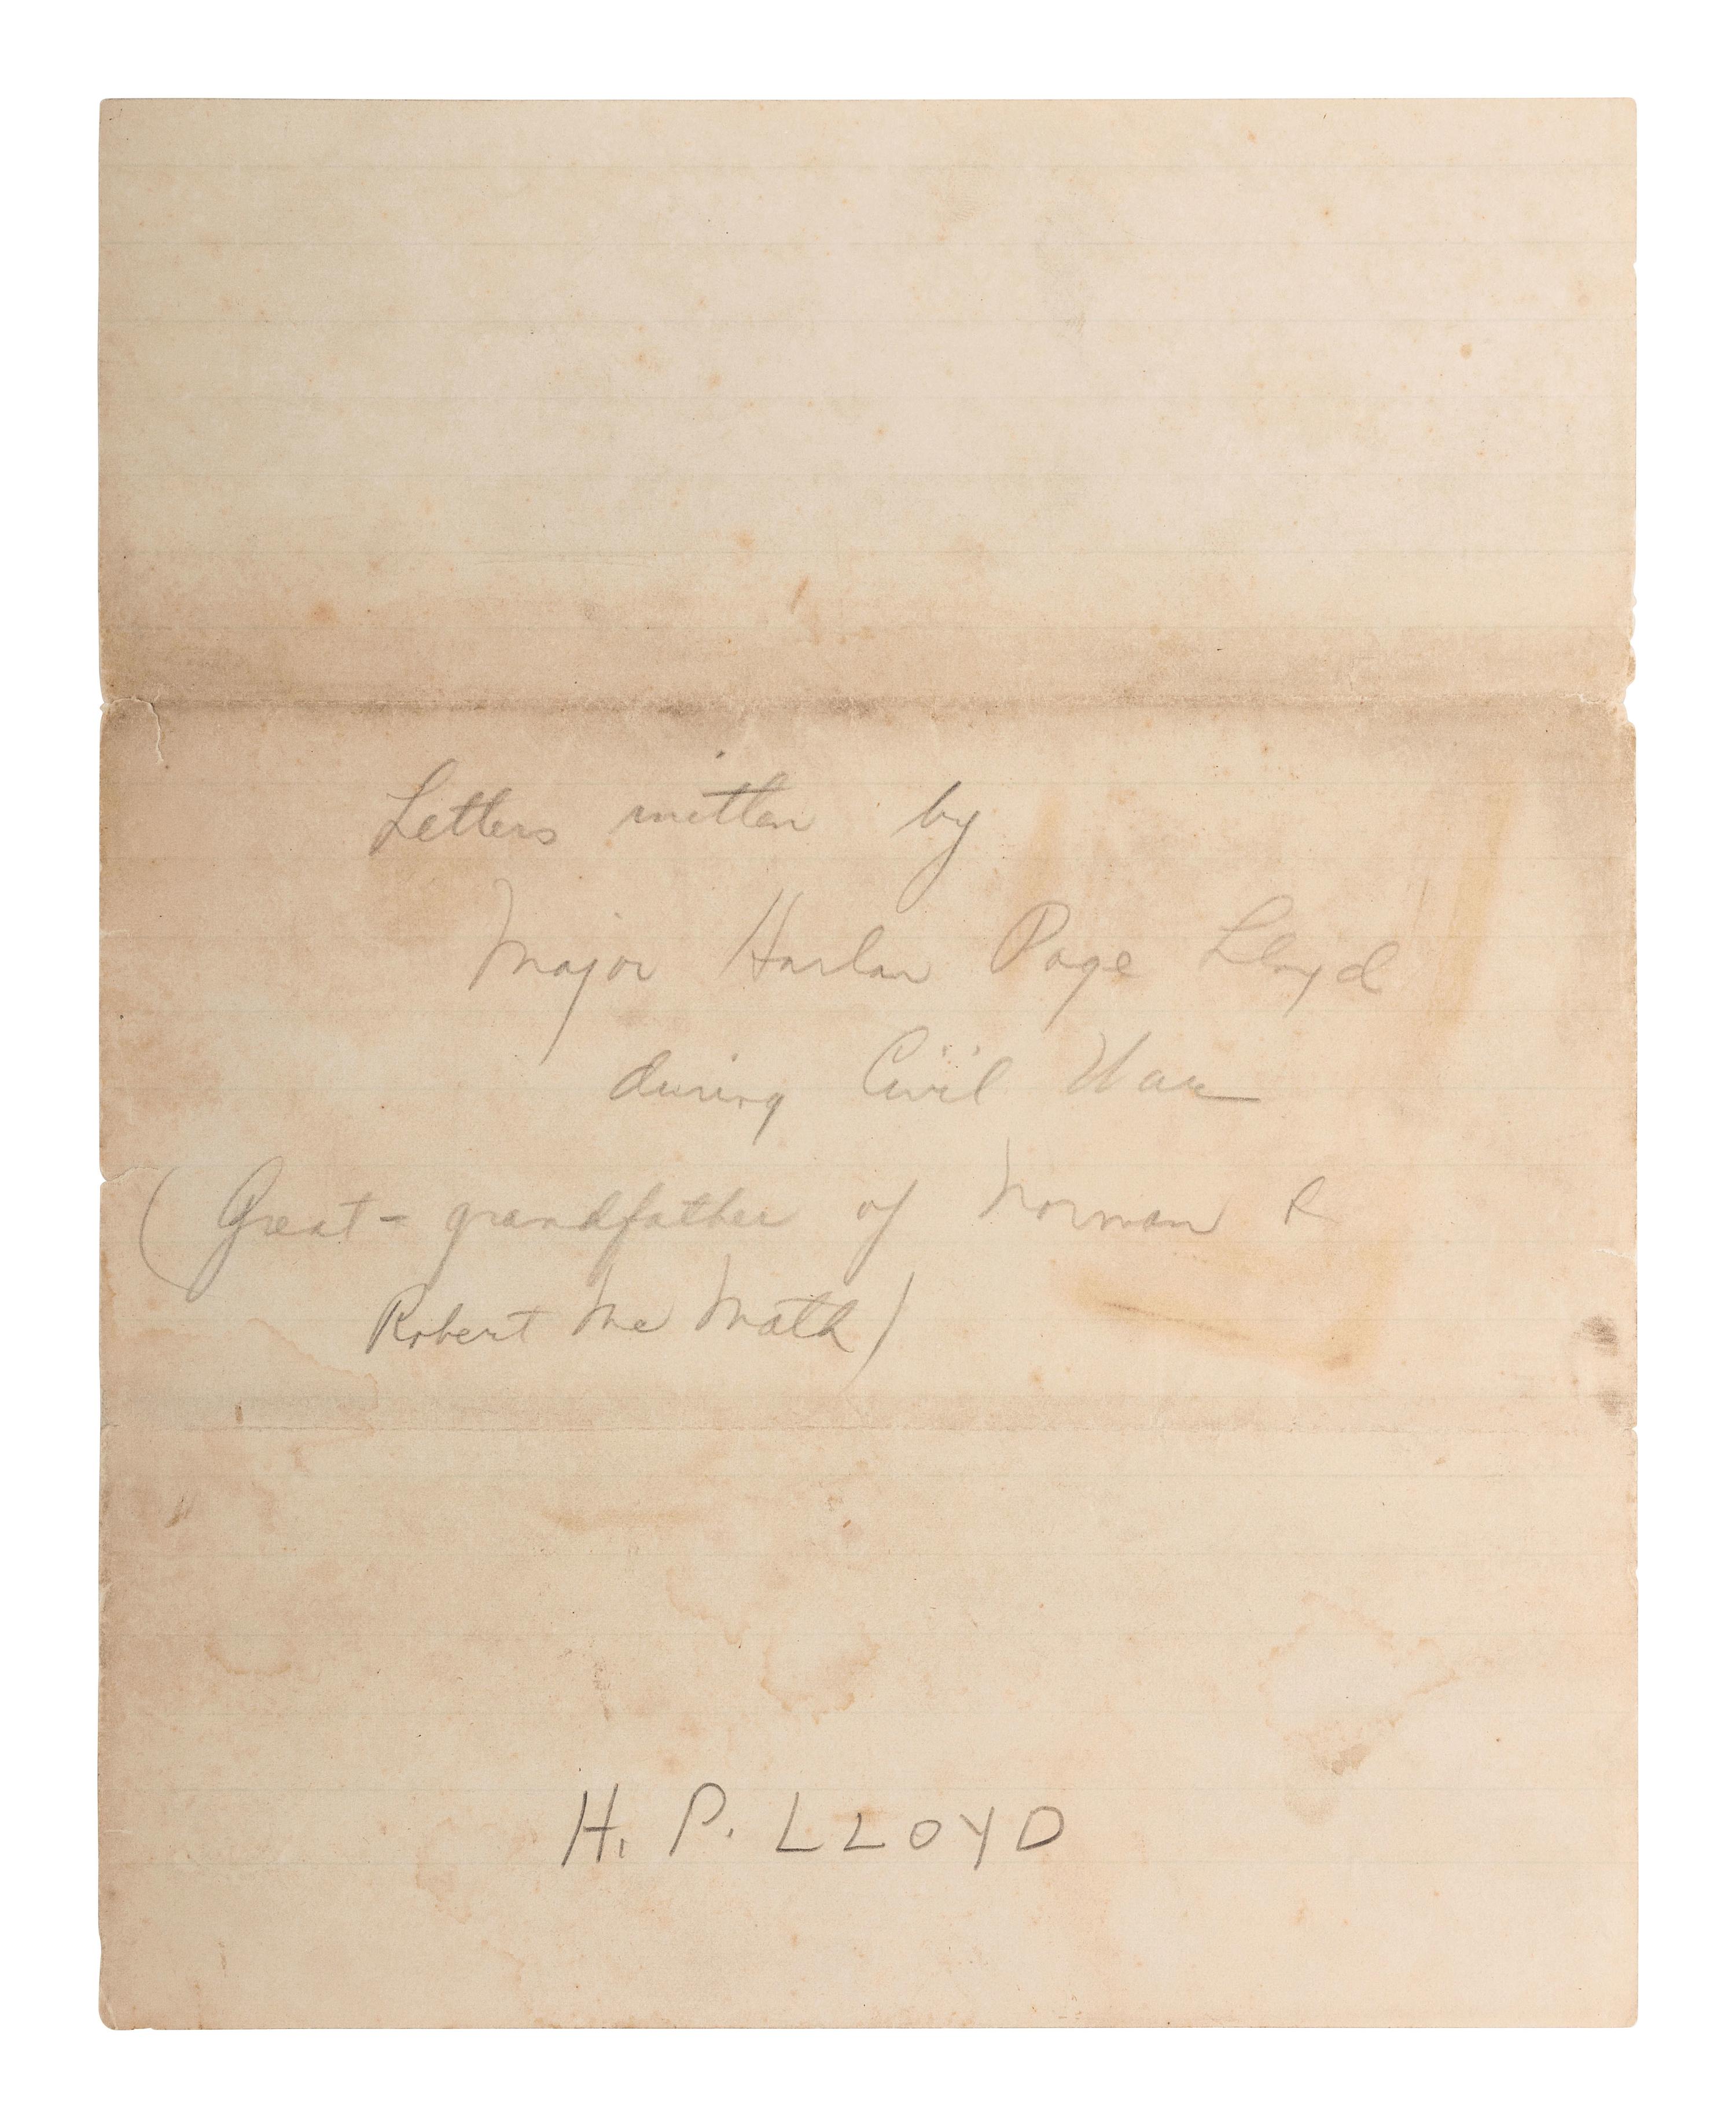 Letters written by
Major Harlan Page Lloyd
during Civil War
(Great-grandfather of Norman &
Robert Mc Math)
H. P. LLOYD